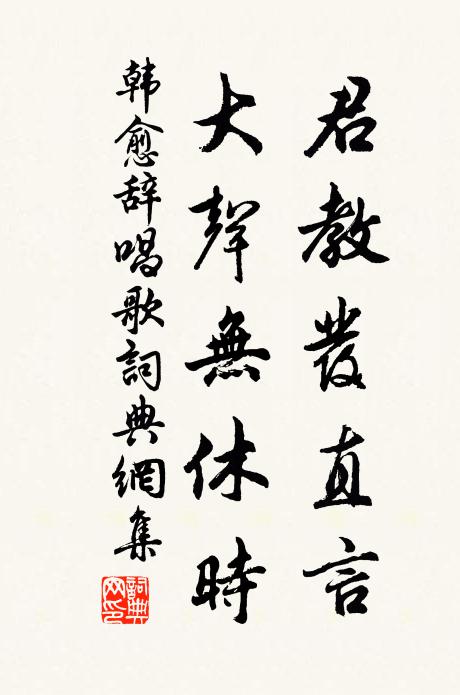 君教發直言
大聲無休時
韩愈辞唱歌詞典網集
詞典网印